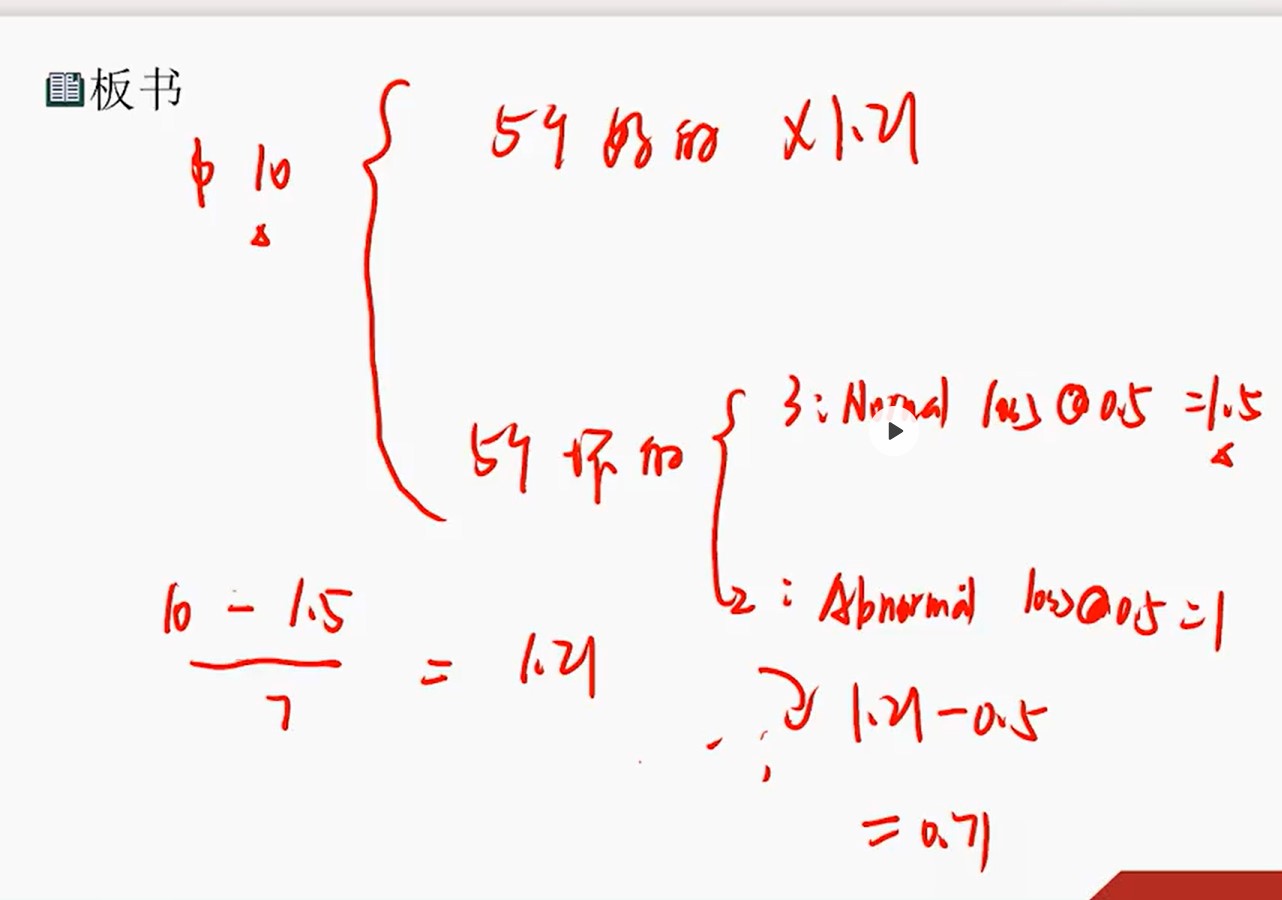 板书
$ 10
5个 好的 ×1.21
5个 坏的
3: Normal loss @ 0.5 =1.5
2: Abnormal loss @ 0.5 = 1
10 - 1.5
7
= 1.21
1.21 - 0.5
= 0.71